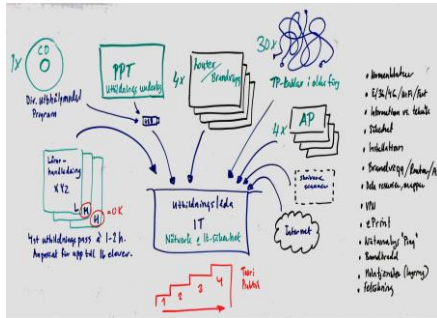 1x
CD
Div. utbildningsmodul
Program
PPT
Utbildnings underlag
USB
4x
Router/
Brandvägg
30x
TP-Kablar i olika färg
4x
AP
Lärar-
handledning
X Y Z
L
M
H
=OK
4st utbildningspass á 1-2 h.
Anpassat för upp till 16 elever.
Utbildningslåda
IT
Nätverk & It-säkerhet
skrivare
scanner
Internet
1
2
3
4
Teori
Praktik
• Nomenklatur
• E/3G/4G/WiFi/
• Information vs teknik
• Säkerhet
• Installation
• Brandvägg/Router/A
• Dela resurser, mappar
• VPN
• ePrint
• Nätanalys "Ping"
• Bandbredd
• (lagring)
• Felsökning